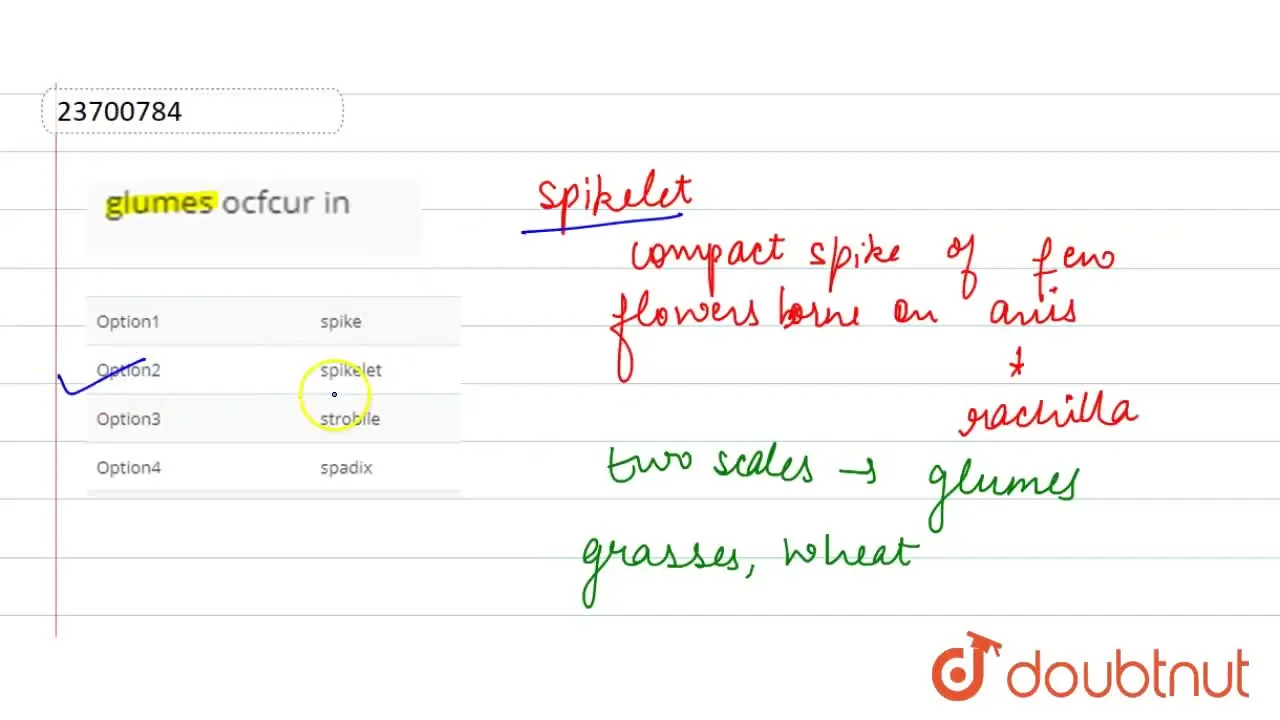 23700784
glumes ocfcur in
Option1 spike
Option2 spikelet
Option3 strobile
Option4 spadix
spikelet
compact spike of few
flowers borne on axis
rachilla
two scales → glumes
grasses, wheat
doubtnut